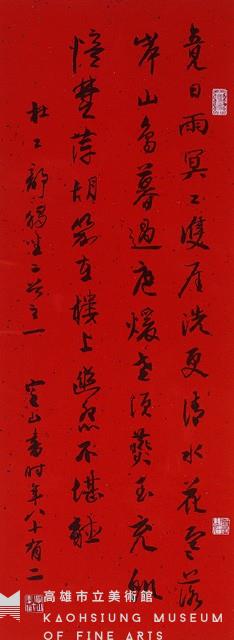 竟日雨冥々雙厓洗更清水花寒落
岸山鳥暮過庭煖老須燕玉充飢
憶楚萍胡笳在樓上哀怨不堪聽
杜工部獨坐二首之一 定山書時年八十有二
高雄市立美術館
KAOHSIUNG MUSEUM
OF FINE ARTS